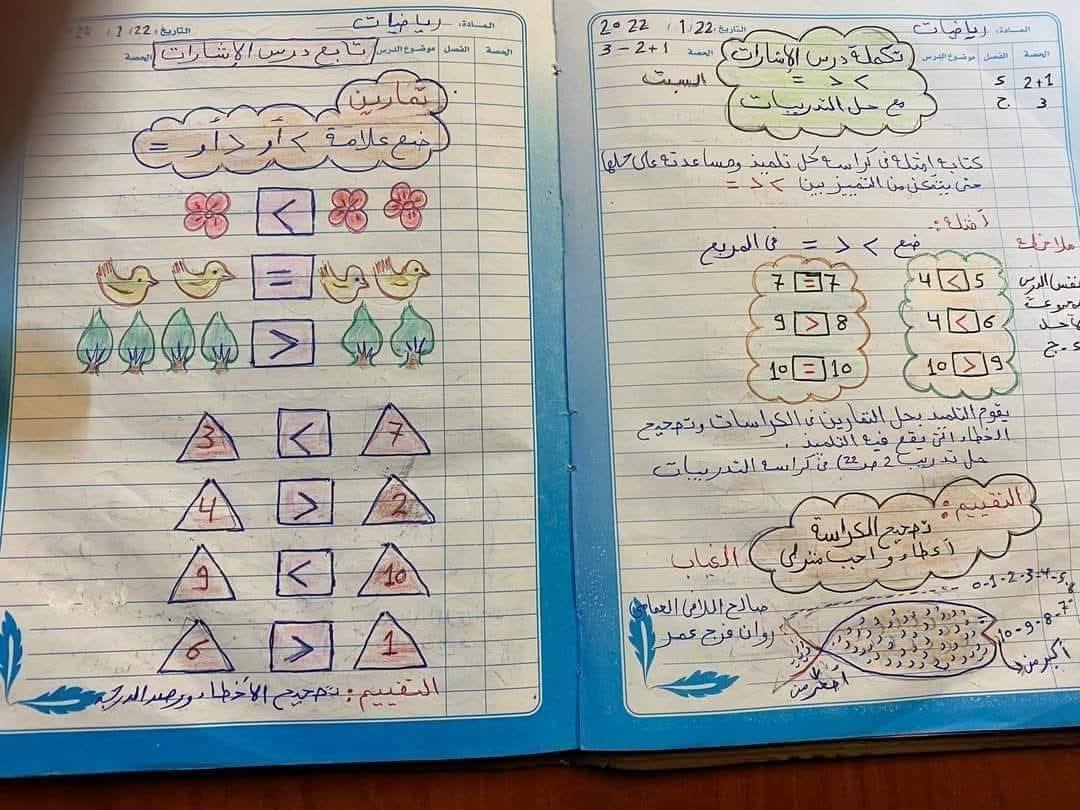 المادة: رياضيات التاريخ: 22 / 1 / 2022
الحصة الفصل موضوع الدرس الحصة 1+2 - 3
1+2 د
3 ج
تكملة درس الإشارات
> < =
مع حل التدريبات
السبت
كتابة امثلة في كراسة كل تلميذ ومساعدته على حلها
حتى يتمكن من التمييز بين > < =
أمثلة:
ضع > < = في المربع
ملاحظة
نفس الدرس
4 < 5
4 < 6
10 > 9
7 = 7
9 > 8
10 = 10
يقوم التلميذ بحل التمارين في الكراسات وتصحيح
الأخطاء التي يقع فيها التلميذ.
حل تدريب 2 ص 22 في كراسة التدريبات
التقييم:
تصحيح الكراسة
أعطاء واجب منزلي
الغياب
صالح اللافي
روان فرج عمر
0-1-2-3-4-5
10-9-8-7
أكبر من
أصغر من
المادة: رياضيات التاريخ: 22 / 1 /
الحصة الفصل موضوع الدرس تابع درس الإشارات الحصة
تمارين
ضع علامة > أو < أو =
<
=
>
3 < 7
4 > 2
9 < 10
6 > 1
التقييم: تصحيح الأخطاء ورصد الدرجة